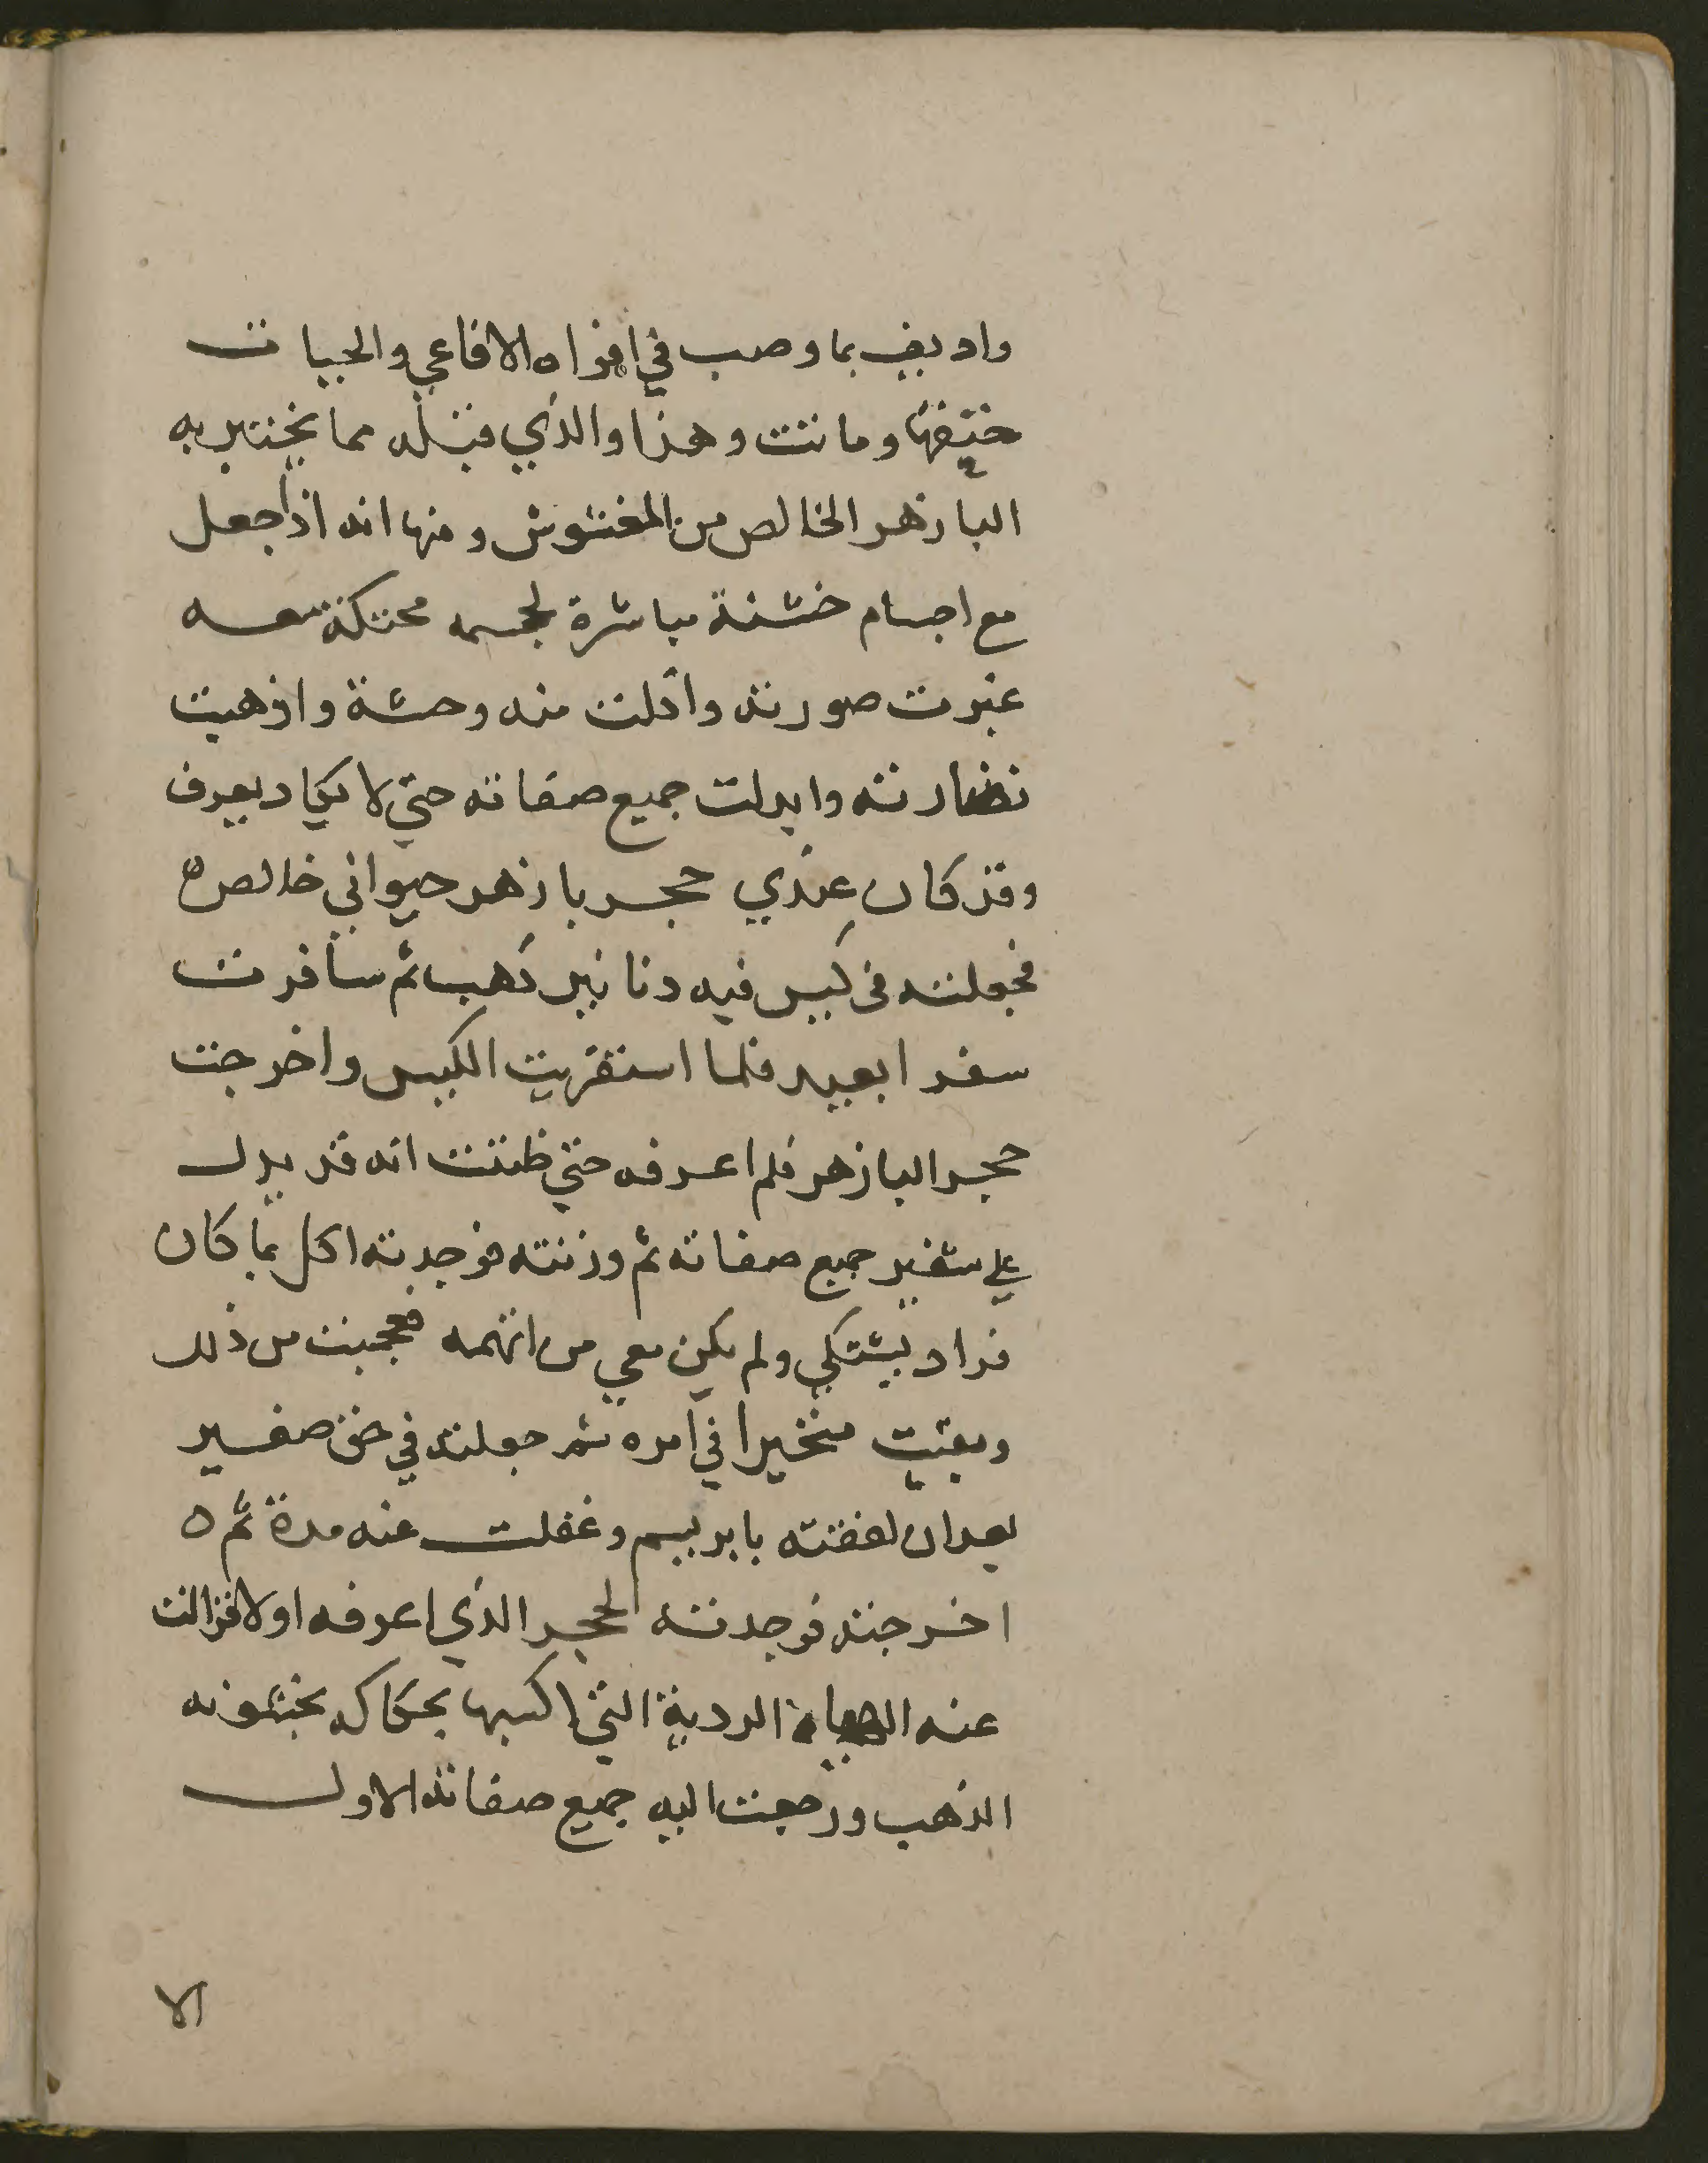 واديف بما وصب في افواه الافاعي والحيات
خنقها وماتت وهذا والذي قبله مما يختبر به
البازهر الخالص من المغشوش ومنها انه اذا جعل
مع اجسام خشنة مباشرة لجسمه محتكة معه
غيرت صورته واكلت منه وحشة واذهبت
نضارته وابدلت جميع صفاته حتي لا يكاد يعرف
وقد كان عندي حجر بازهر حيواني خالص ه
فجعلته في كيس فيه دنانير ذهب ثم سافرت
سفرا بعيد فلما استقريت الكيس واخرجت
حجر البازهر فلم اعرفه حتي ظننت انه قد بدل
علي تغير جميع صفاته ثم وزنته فوجدته اكل بما كان
فزاد تشكي ولم يكن معي من اتهمه فعجبت من ذلك
وبقيت متحيرا في امره ثم جعلته في حق صغير
بعد ان لففته بابريسم وغفلت عنه مدة ثم ه
اخرجته فوجدته الحجر الذي اعرفه اولا فزالت
عنه الهياة الردية التي اكسبها بحكاكه بخشونه
الذهب ورجعت اليه جميع صفاته الاول
الا